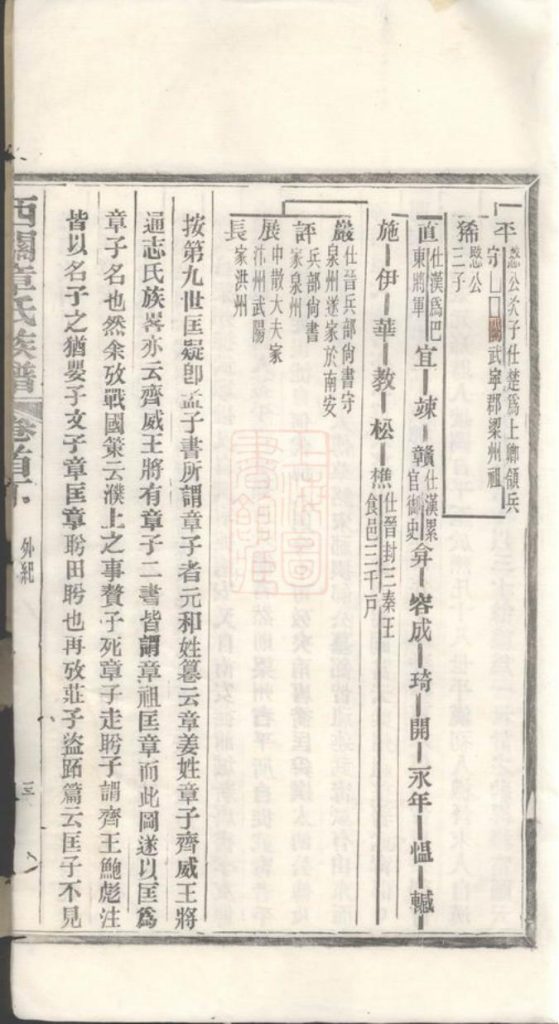 平 愍公次子仕楚爲上卿領兵守 武寧郡梁州祖
豨 愍公三子
直 仕漢爲巴東將軍 宜 竦 贛 仕漢累官御史 弇 容成 琦 開 永年 愠 轗
施 伊 華 教 松 樵 仕晉封三秦王食邑三千戸
嚴 仕晉兵部尙書守泉州遂家於南安
評 兵部尙書家泉州
展 中散大夫家汴州武陽
長 家洪州
按第九世匡疑卽孟子書所謂章子者元和姓纂云章姜姓章子齊威王將
通志氏族畧亦云齊威王將有章子二書皆謂章祖匡章而此圖遂以匡爲
章子名也然余攷戰國策云濮上之事贅子死章子走盼子謂齊王鮑彪注
皆以名子之猶嬰子文子章匡章盼田盼也再攷莊子盜跖篇云匡子不見
西關章氏族譜 卷首下 外紀 三